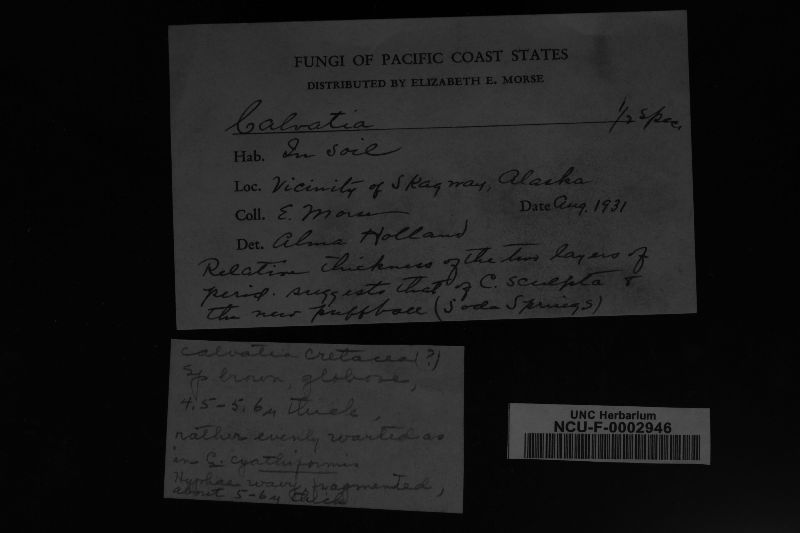 FUNGI OF PACIFIC COAST STATES
DISTRIBUTED BY ELIZABETH E. MORSE
Calvatia 1/2 spec.
Hab. In soil
Loc. Vicinity of Skagway, Alaska
Coll. E. Morse Date Aug. 1931
Det. Alma Holland
Relative thickness of the two layers of
perid. suggests that of C. sculpta &
the new puffball (Soda Springs)
Calvatia cretacea (?)
Sp brown, globose,
4.5-5.6µ thick,
rather evenly warted as
in C. cyathiformis
Hyphae wavy, fragmented,
about 5-6µ thick
UNC Herbarium
NCU-F-0002946